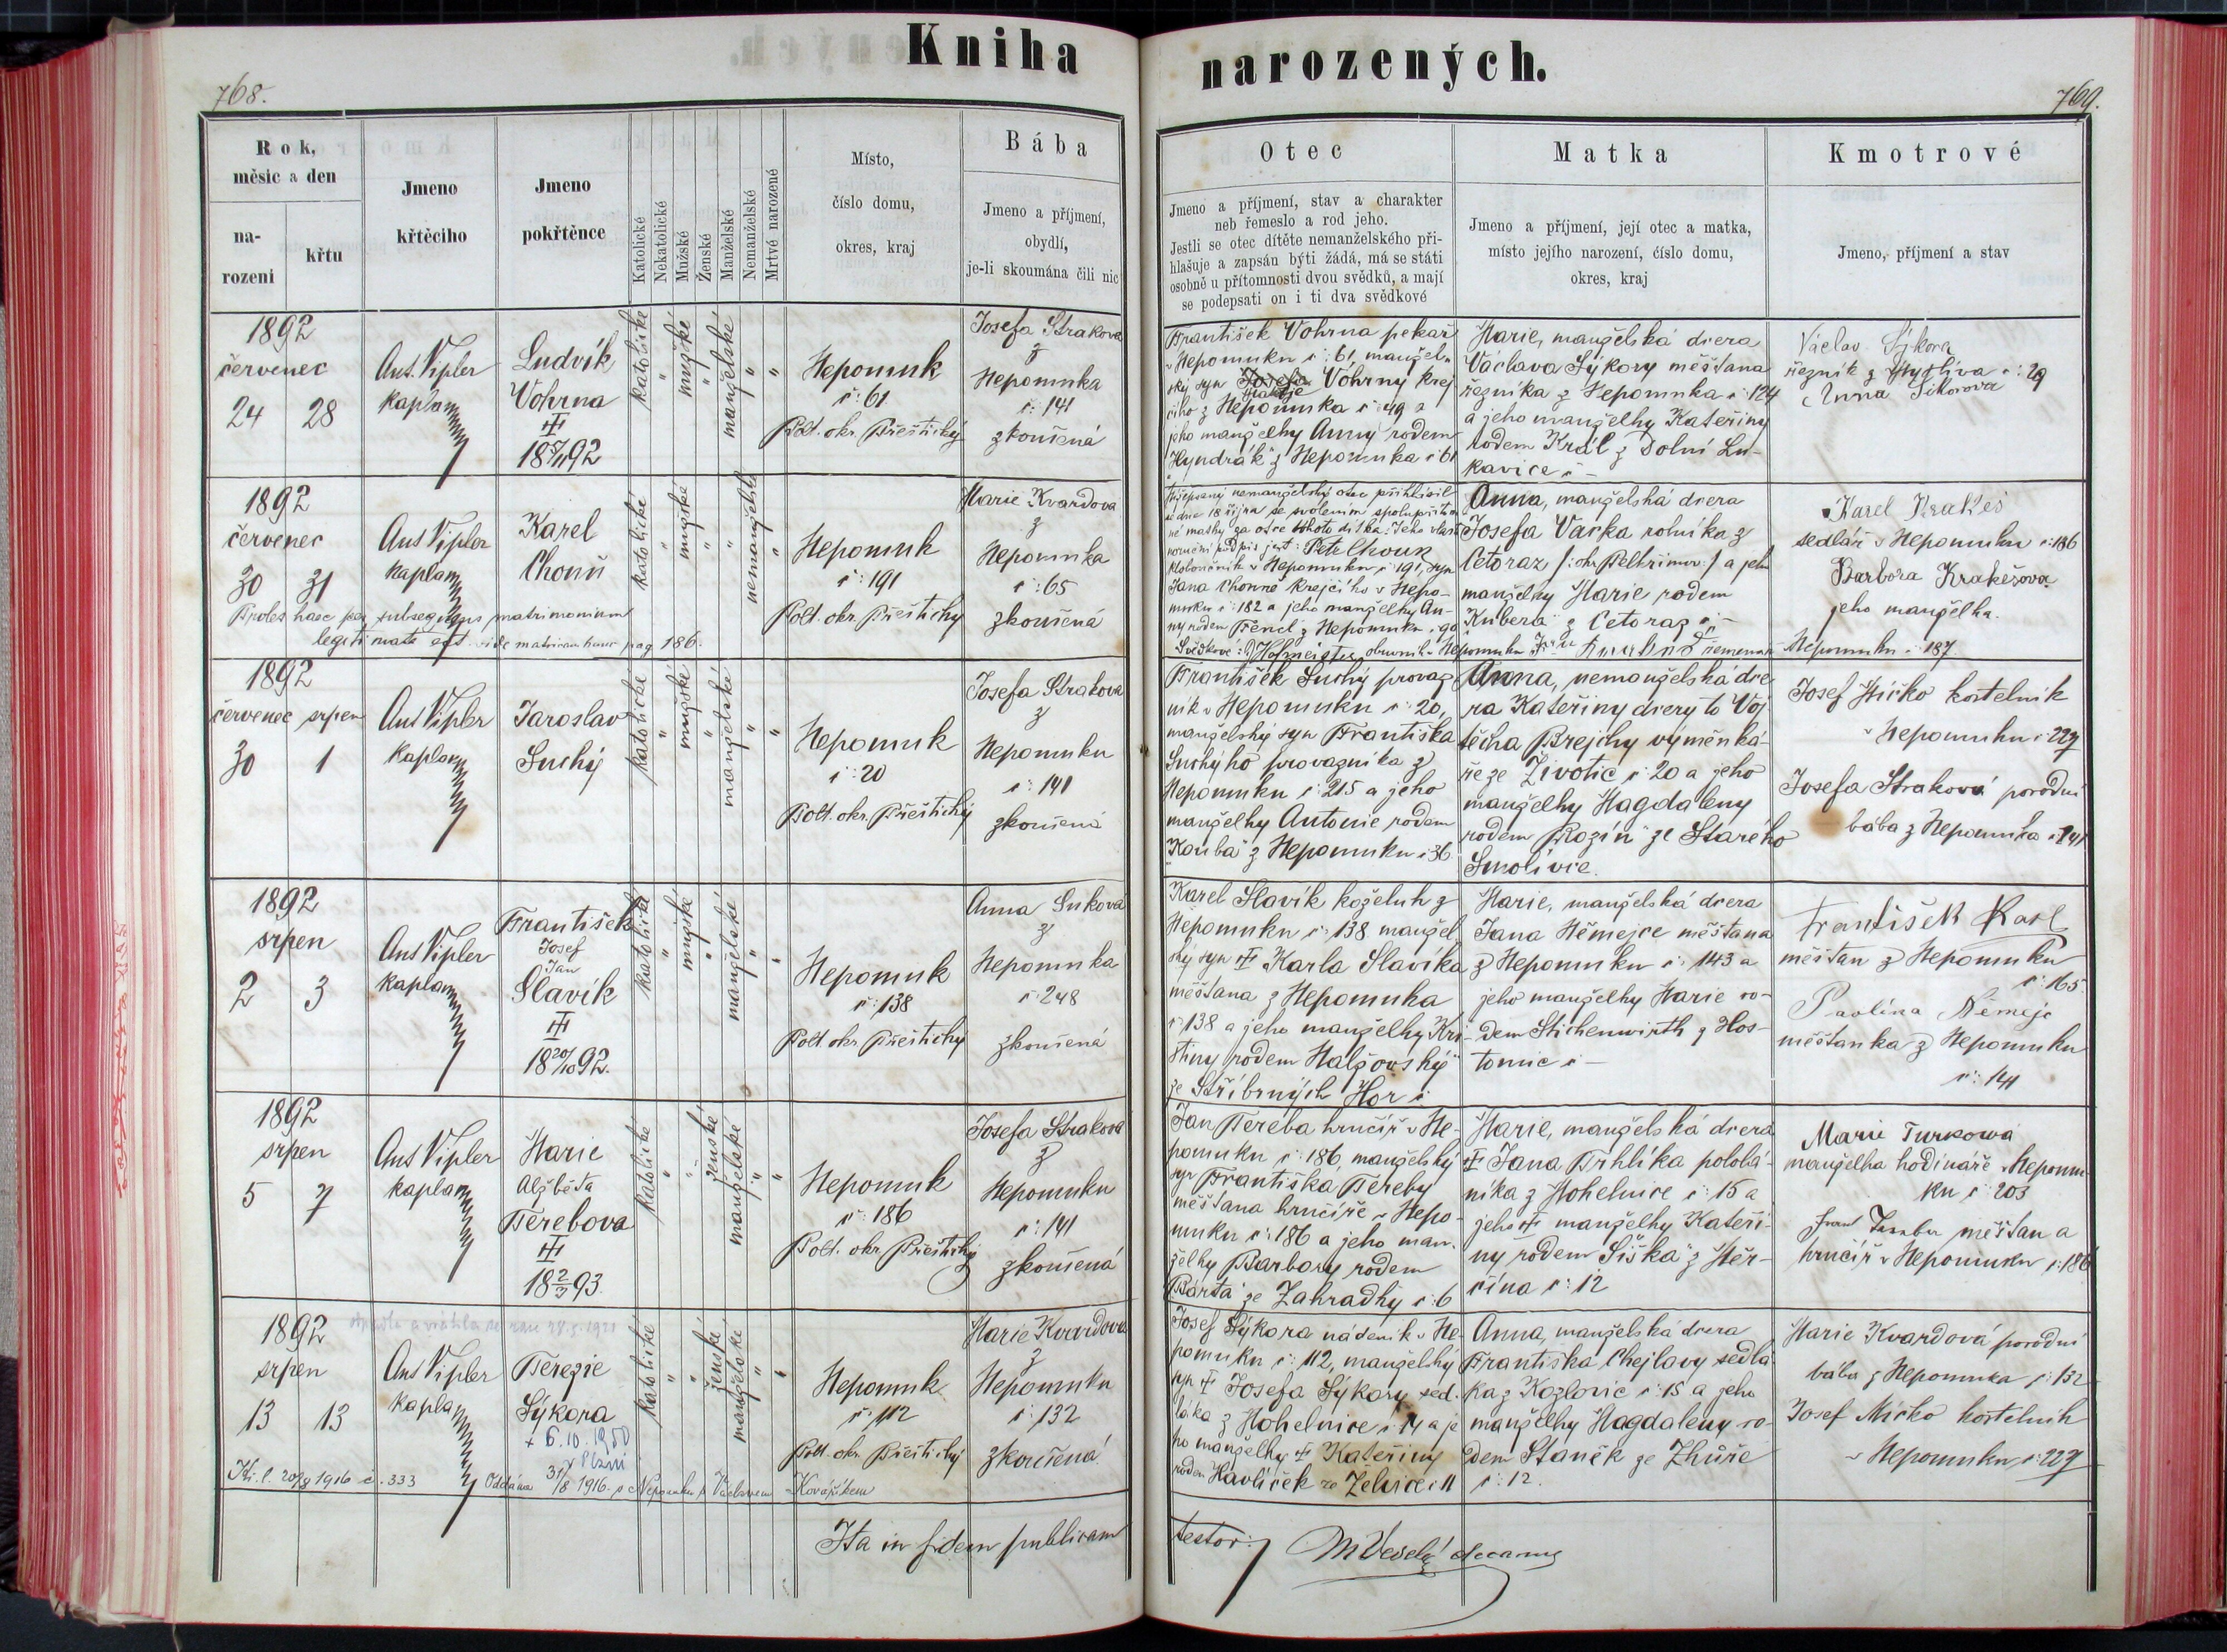 Kniha narozených.
768.
769.
Rok,
měsíc a den
na-
rození
křtu
Jmeno
křtěcího
Jmeno
pokřtěnce
Katolické
Nekatolické
Mužské
Ženské
Manželské
Nemanželské
Mrtvé narozené
Místo,
číslo domu,
okres, kraj
Bába
Jmeno a příjmení,
obydlí,
je-li skoumána čili nic
Otec
Jmeno a příjmení, stav a charakter
neb řemeslo a rod jeho.
Jestli se otec dítěte nemanželského při-
hlašuje a zapsán býti žádá, má se státi
osobně u přítomnosti dvou svědků, a mají
se podepsati on i ti dva svědkové
Matka
Jmeno a příjmení, její otec a matka,
místo jejího narození, číslo domu,
okres, kraj
Kmotrové
Jmeno, příjmení a stav
1892
červenec
24 28
Ant. Vipler
kaplan
Ludvík
Vohrna
18 92
katolické
"
mužské
"
manželské
"
"
Nepomuk
č: 61
Polit. okr. Přeštický
Josefa Straková
z
Nepomuka
č: 141
zkoušená
František Vohrna pekař
v Nepomuku č: 61, manžel-
ský syn Josefa Vohrny krej
čího z Nepomuka č: 49 a
jeho manželky Anny rodem
"Hyndrák" z Nepomuka č 61
Marie, manželská dcera
Václava Sýkory měšťana
řezníka z Nepomuka č: 124
a jeho manželky Kateřiny
rodem Král z Dolní Lu-
kavice č –
Václav Sýkora
řezník z č: 29
Anna Sikorova
1892
červenec
30 31
Ant Vipler
kaplan
Karel
Chouň
katolické
"
mužské
"
"
nemanželské
"
Nepomuk
č: 191
Polt. okr. Přeštický
Marie Kvardova
z
Nepomuka
č: 65
zkoušená
Proles haec per subsequens matrimonium
legitimata est. vide matricam hanc pag 186.
nemanželský otec přihlásil
se dne 18 října se svolením spolupřítom
né matky za otce tohoto dítka. Jeho vlast
noruční podpis jest: Petr Chouň
kloboučník v Nepomuku č 191, syn
Jana Chouně krejčího v Nepo-
muku č: 182 a jeho manželky An-
ny rodem Fencl z Nepomuku č 90
Svědkové: Hofmeister obuvník v Nepomuku
Anna, manželská dcera
Josefa Vacka rolníka z
Cetoraz /: okr. Pelhřimov :/ a jeho
manželky Marie rodem
"Kubera" z Cetoraz č –
Karel Krakeš
sedlář v Nepomuku č: 186
Barbora Krakešova
jeho manželka.
Nepomuku č 187.
1892
červenec srpen
30 1
Ant Vipler
kaplan
Jaroslav
Suchý
katolické
"
mužské
"
manželské
"
"
Nepomuk
č: 20
Polt. okr. Přeštický
Josefa Straková
z
Nepomuku
č: 141
zkoušená
František Suchý provaz
ník v Nepomuku č: 20,
manželský syn Františka
Suchýho provazníka z
Nepomuku č: 215 a jeho
manželky Antonie rodem
"Kouba" z Nepomuku č 36.
Anna, nemanželská dce
ra Kateřiny dcery to Voj
těcha Brejchy výměnká-
ře ze Životic č: 20 a jeho
manželky Magdaleny
rodem "Rozín" ze Starého
Smolivce.
Josef Mičko kostelník
v Nepomuku č: 227
Josefa Straková porodní
bába z Nepomuka č: 141
1892
srpen
2 3
Ant Vipler
kaplan
František
Josef
Jan
Slavík
18 20/10 92.
katolické
"
mužské
"
manželské
"
"
Nepomuk
č: 138
Polt okr. Přeštický
Anna Suková
z
Nepomuka
č 248
zkoušená
Karel Slavík koželuh z
Nepomuku č: 138 manžel
ský syn Karla Slavíka
měšťana z Nepomuka
č 138 a jeho manželky Kri-
stiny rodem Halžovský
ze Stříbrných Hor č
Marie, manželská dcera
Jana Němejce měšťana
z Nepomuku č: 143 a
jeho manželky Marie ro-
dem Stichenwirth z Hos-
tomic č –
František Karl
měšťan z Nepomuku
č: 165.
Paulina Němejc
měšťanka z Nepomuku
č: 141
1892
srpen
5 7
Ant Vipler
kaplan
Marie
Alžběta
Terebova
18 2/3 93.
katolické
"
"
ženské
manželské
"
"
Nepomuk
č: 186
Polt. okr. Přeštický
Josefa Straková
z
Nepomuku
č: 141
zkoušená
Jan Tereba hrnčíř v Ne-
pomuku č: 186, manželský
syn Františka Tereby
měšťana hrnčíře v Nepo-
muku č: 186 a jeho man-
želky Barbory rodem
Bárta ze Zahrádky č: 6
Marie, manželská dcera
Jana Trhlíka polobá-
níka z Mohelnice č: 15 a
jeho manželky Kateři-
ny rodem "Šiška" z Měr-
čína č: 12
Marie Turkowá
manželka hodináře v Nepomu-
ku č: 203
měšťan a
hrnčíř v Nepomuku č: 186
1892
srpen
13 13
Ant Vipler
kaplan
Terezie
Sýkora
+ 6.10.1950
v Plzni
katolické
"
"
ženské
manželské
"
"
Nepomuk
č: 112
Polt. okr. Přeštický
Marie Kvardova
z
Nepomuku
č: 132
zkoušená
1916 č. 333
Oddána 31/8 1916. v Nepomuku s Václavem Kovaříkem
Josef Sýkora nádeník v Ne-
pomuku č: 112, manželský
syn Josefa Sýkory sed-
láka z Mohelnice č 14 a je
ho manželky Kateřiny
rodem Havlíček ze Želvice č 11
Anna, manželská dcera
Františka Chejlavy sedlá-
ka z Kozlovic č: 15 a jeho
manželky Magdaleny ro-
dem Staněk ze Zhůře
č: 12.
Marie Kvardová porodní
bába z Nepomuka č: 132
Josef Mičko kostelník
v Nepomuku č: 227
Ita in fidem publicam
testor:
M Veselý decanus